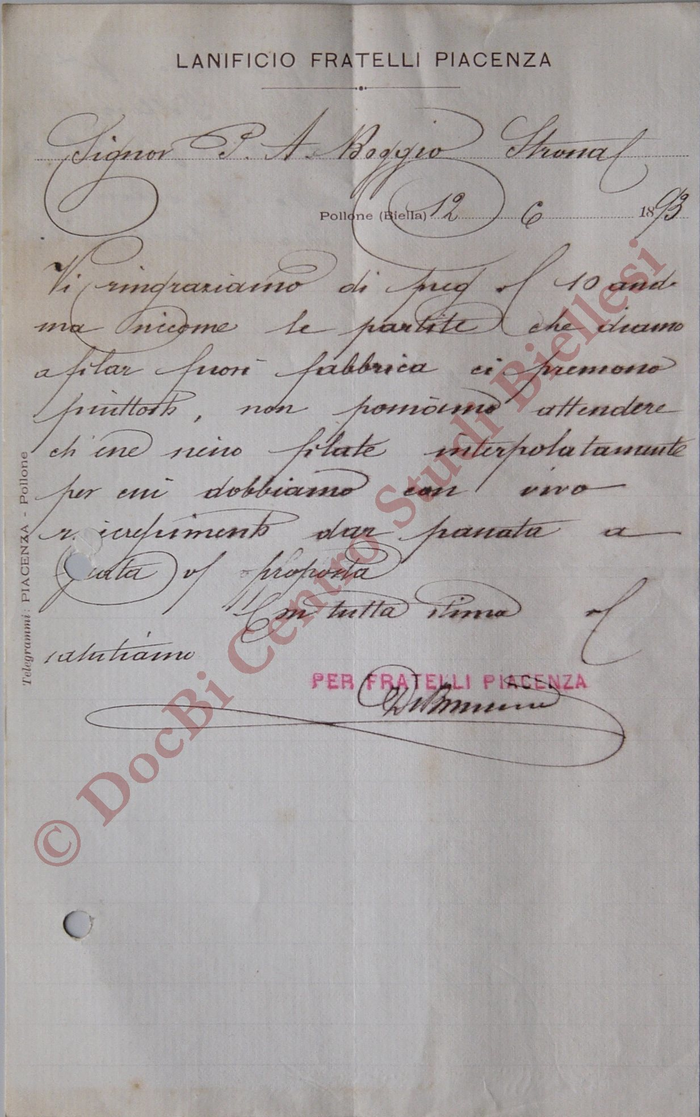 LANIFICIO FRATELLI PIACENZA
Signor P. A. Boggio Strona
Pollone (Biella) 12 6 1893
Vi ringraziamo di preg 10 and.
ma siccome le partite che diamo
a filar fuori fabbrica ci premono
piuttosto, non possiamo attendere
ch'esse sieno filate interpolatamente
per cui dobbiamo con vivo
rincrescimento dar passata a
proposta
Con tutta stima
salutiamo
PER FRATELLI PIACENZA
Telegrammi: PIACENZA - Pollone
© DocBi Centro Studi Biellesi